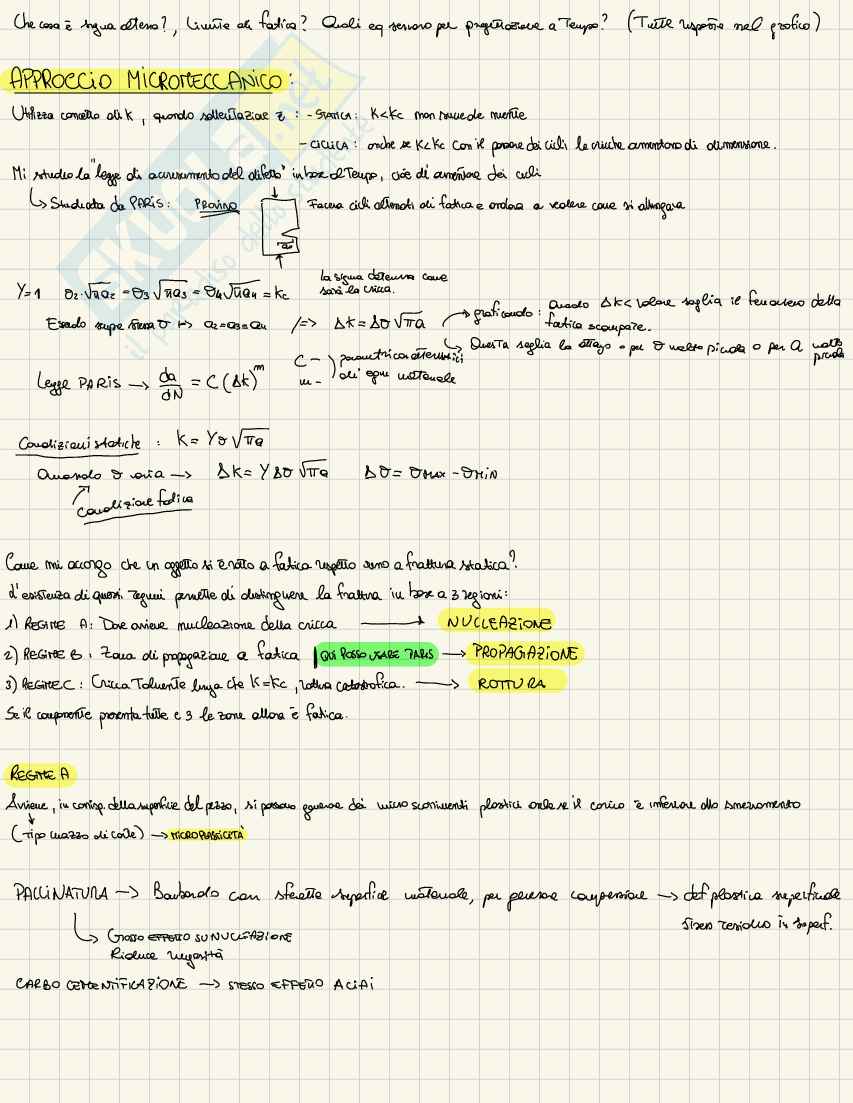 Che cosa è sigma alterno?, Limite di fatica? Quali eq servono per progettazione a Tempo? (Tutte risposte nel grafico)
APPROCCIO MICROMECCANICO:
Utilizza concetto di K, quando sollecitazione è: - STATICA: K<Kc non succede niente
- CICLICA: anche se K<Kc con il passare dei cicli le cricche aumentano di dimensione.
Mi studio la "legge di accrescimento del difetto" in base al Tempo, cioè all'aumentare dei cicli
↳ Studiata da PARIS: PROVINO Faceva cicli alternati di fatica e andava a vedere come si allungava
a
Y=1 σ2·√πa2 = σ3√πa3 = σ4√πa4 = Kc
la sigma determina come sarà la cricca.
Essendo stessa σ ↦ a2=a3=a4 /=> ΔK=Δσ√πa
graficando: Quando ΔK< valore soglia il fenomeno della fatica scompare.
Questa soglia la o per σ molto piccola o per a molto piccola
Legge PARIS → da/dN = C(ΔK)^m
C - m - parametri caratteristici di ogni materiale
Condizioni statiche: K= Yσ√πa
Quando σ varia → ΔK= YΔσ√πa Δσ= σMAX - σMIN
Condizione fatica
Come mi accorgo che un oggetto si è rotto a fatica rispetto a frattura statica?
L'esistenza di questi regimi permette di distinguere la frattura in base a 3 regioni:
1) REGIME A: Dove avviene nucleazione della cricca → NUCLEAZIONE
2) REGIME B: Zona di propagazione a fatica | QUI POSSO USARE PARIS → PROPAGAZIONE
3) REGIME C: Cricca Talmente lunga che K=Kc, rottura catastrofica. → ROTTURA
Se il componente presenta tutte e 3 le zone allora è fatica.
REGIME A
Avviene, in corrisp. della superficie del pezzo, si possono generare dei micro scorrimenti plastici anche se il carico è inferiore allo snervamento
(Tipo mazzo di carte) → MICROPLASTICITÀ
PALLINATURA → Bombardo con sferette superficie materiale, per generare compressione → def plastica superficiale
stress residuo in superf.
↳ Grosso EFFETTO SU NUCLEAZIONE
Riduce rugosità
CARBO CEMENTIFICAZIONE → STESSO EFFETTO ACIAI
SKUOLA.net
il paradiso dello studente